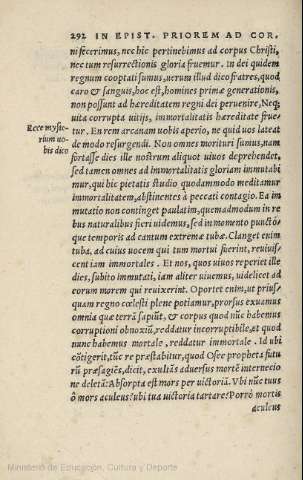 292 IN EPIST. PRIOREM AD COR.
ni fecerimus, nec hic pertinebimus ad corpus Christi,
nec tum resurrectionis gloria fruemur. In dei quidem
regnum cooptati sumus, uerum illud dico fratres, quod
caro & sanguis, hoc est, homines primæ generationis,
non possunt ad hæreditatem regni dei peruenire, Neq;
uita corrupta uitijs, immortalitatis hæreditate frue-
Ecce myste-
rium uo-
bis dico
tur. En rem arcanam uobis aperio, ne quid uos lateat
de modo resurgendi. Non omnes morituri sumus, nam
fortasse dies ille nostrum aliquot uiuos deprehendet,
sed tamen omnes ad immortalitatis gloriam immutabi
mur, qui hic pietatis studio quodammodo meditamur
immortalitatem, abstinentes à peccati contagio. Ea im
mutatio non continget paulatim, quemadmodum in re
bus naturalibus fieri uidemus, sed in momento puncto�q́;
que temporis ad cantum extremæ tubæ. Clanget enim
tuba, ad cuius uocem qui tum mortui fuerint, reuiuis-
cent iam immortales. Et nos, quos uiuos reperiet ille
dies, subito immutati, iam aliter uiuemus, uidelicet ad
eorum morem qui reuixerint. Oportet enim, ut prius-
quam regno cœlesti plene potiamur, prorsus exuamus
omnia quæ terrã sapiũt, & corpus quod nũc habemus
corruptioni obnoxiũ, reddatur incorruptibile, et quod
nunc habemus mortale, reddatur immortale. Id ubi
cõtigerit, tũc re præstabitur, quod Osee propheta futu
rũ præsagiẽs, dicit, exultãs aduersus mortẽ internecio
ne deletã: Absorpta est mors per uictoriã. Vbi nũc tuus
ô mors aculeus? ubi tua uictoria tartare? Porrò mortis
aculeus
Ministerio de Educación, Cultura y Deporte